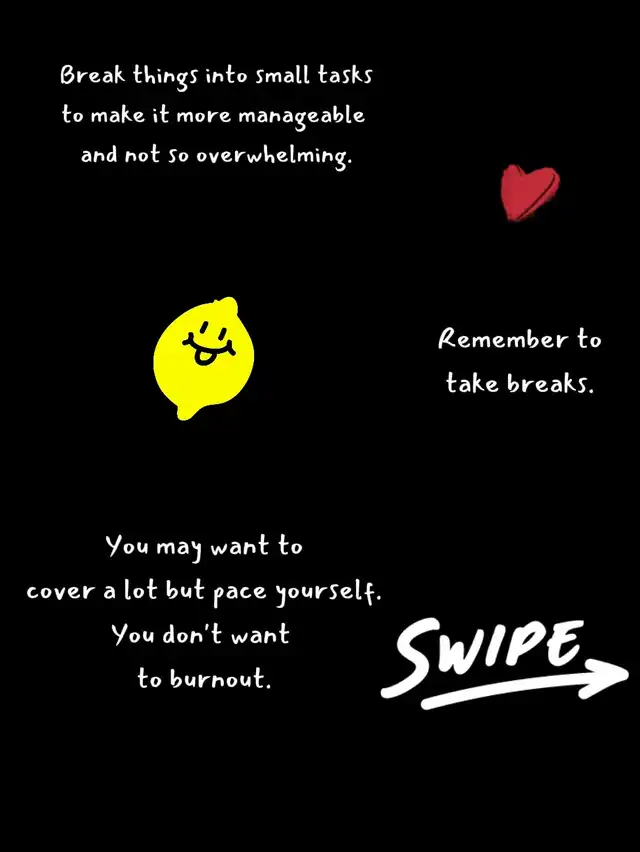 Break things into small tasks
to make it more manageable
and not so overwhelming.
Remember to
take breaks.
You may want to
cover a lot but pace yourself.
You don't want
to burnout.
SWIPE